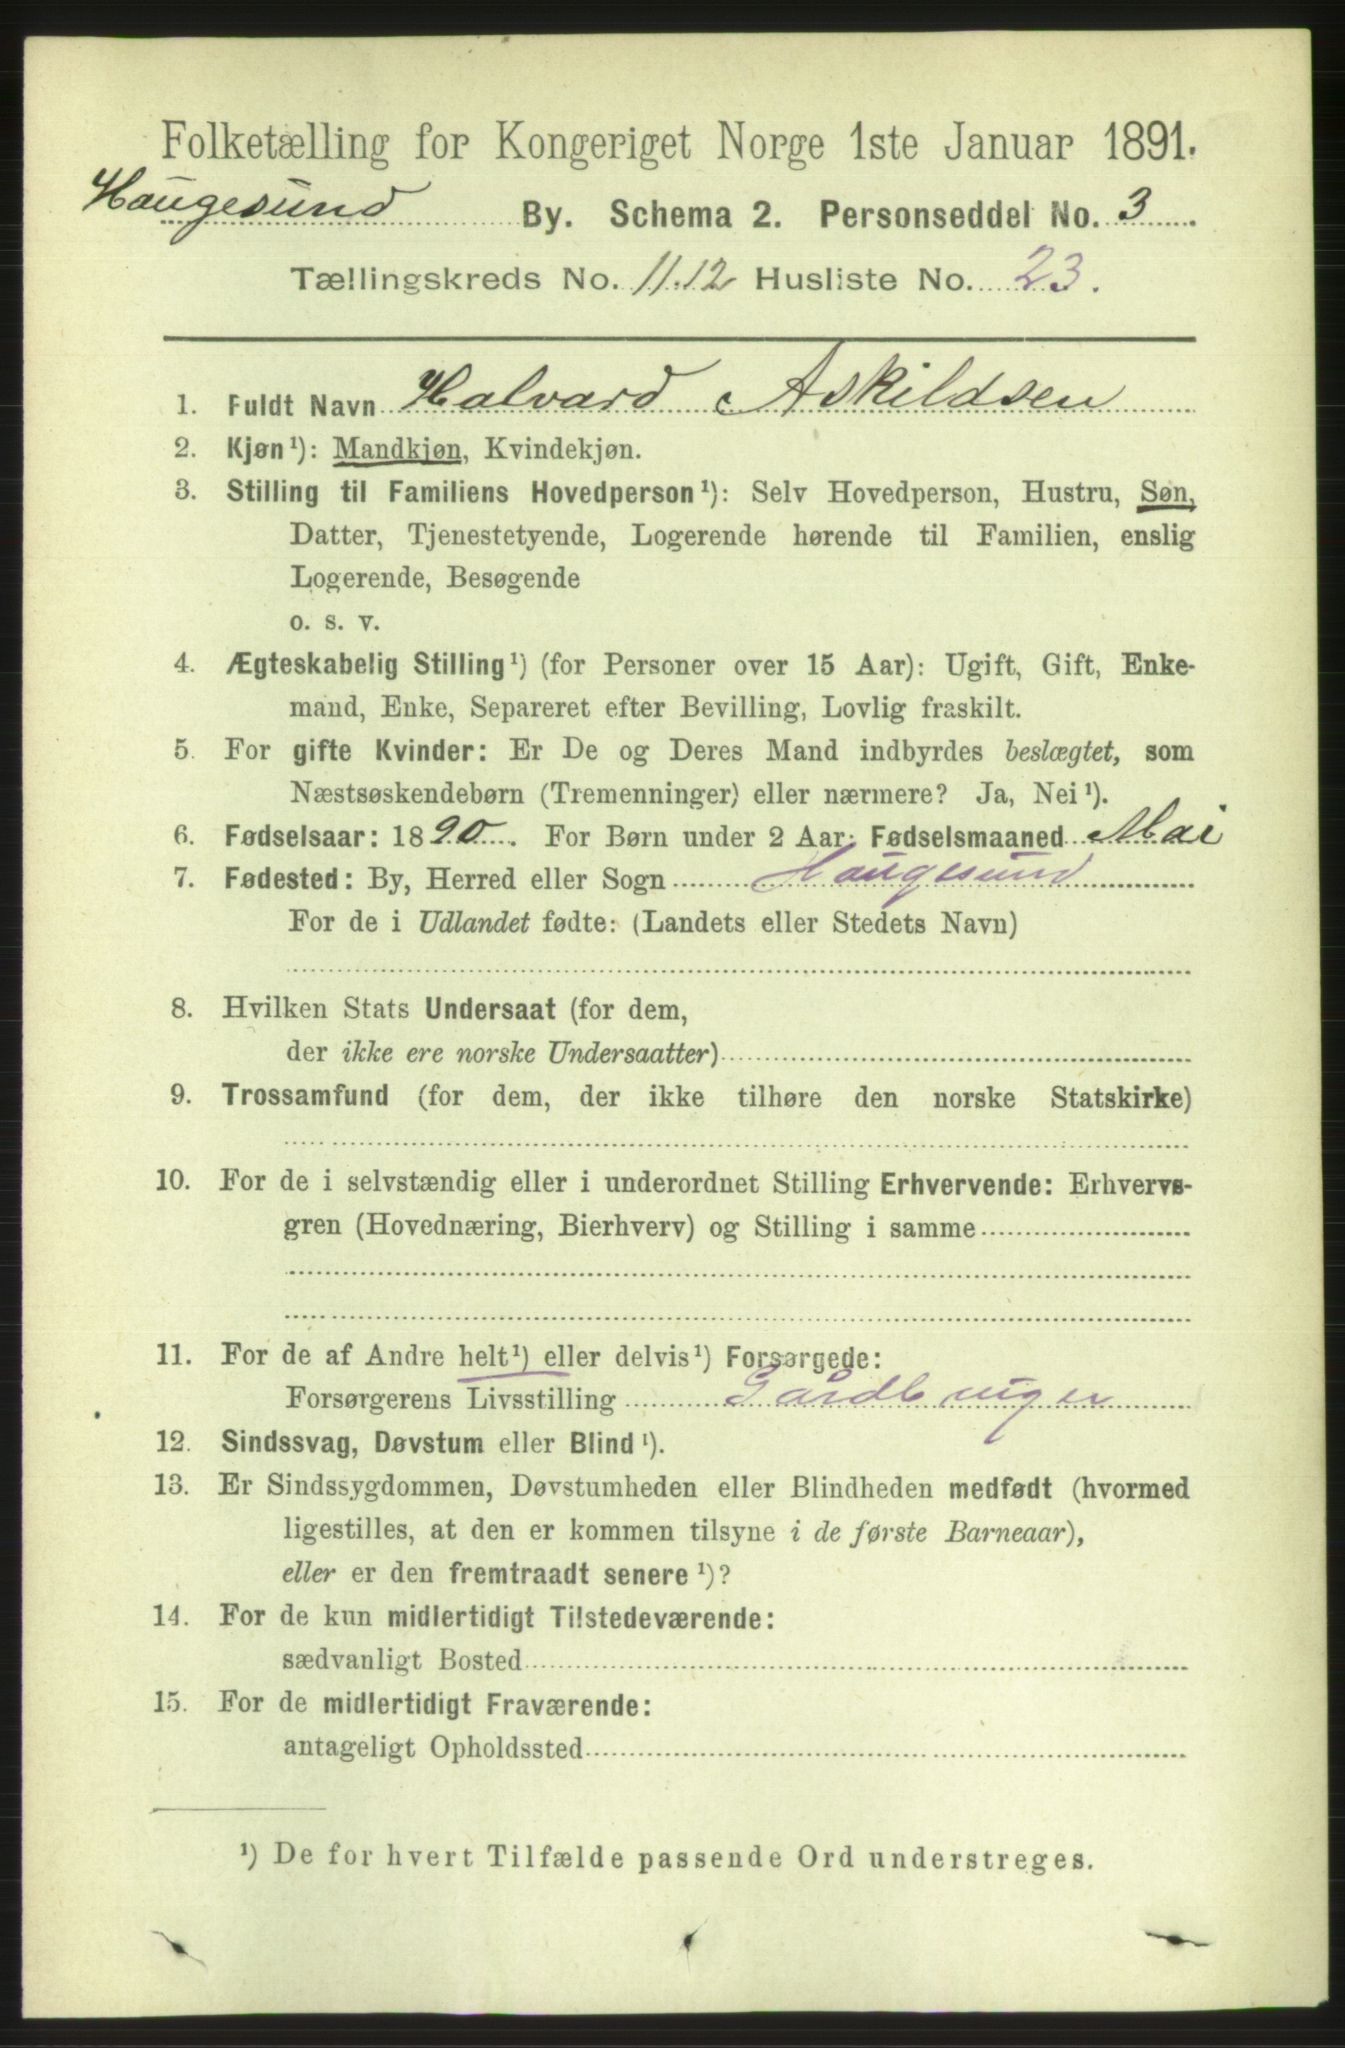 Folketælling for Kongeriget Norge 1ste Januar 1891.
Haugesund By. Schema 2. Personseddel No. 3
Tællingskreds No. 11.12 Husliste No. 23.
1. Fuldt Navn Halvard Askildsen
2. Kjøn¹): Mandkjøn, Kvindekjøn.
3. Stilling til Familiens Hovedperson¹): Selv Hovedperson, Hustru, Søn,
Datter, Tjenestetyende, Logerende hørende til Familien, enslig
Logerende, Besøgende
o. s. v.
4. Ægteskabelig Stilling¹) (for Personer over 15 Aar): Ugift, Gift, Enke-
mand, Enke, Separeret efter Bevilling, Lovlig fraskilt.
5. For gifte Kvinder: Er De og Deres Mand indbyrdes beslægtet, som
Næstsøskendebørn (Tremenninger) eller nærmere? Ja, Nei¹).
6. Fødselsaar: 1890. For Børn under 2 Aar: Fødselsmaaned Mai
7. Fødested: By, Herred eller Sogn Haugesund
For de i Udlandet fødte: (Landets eller Stedets Navn)
8. Hvilken Stats Undersaat (for dem,
der ikke ere norske Undersaatter)
9. Trossamfund (for dem, der ikke tilhøre den norske Statskirke)
10. For de i selvstændig eller i underordnet Stilling Erhvervende: Erhvervs-
gren (Hovednæring, Bierhverv) og Stilling i samme
11. For de af Andre helt¹) eller delvis¹) Forsørgede:
Forsørgerens Livsstilling Gårdbruger
12. Sindssvag, Døvstum eller Blind¹).
13. Er Sindssygdommen, Døvstumheden eller Blindheden medfødt (hvormed
ligestilles, at den er kommen tilsyne i de første Barneaar),
eller er den fremtraadt senere¹)?
14. For de kun midlertidigt Tilstedeværende:
sædvanligt Bosted
15. For de midlertidigt Fraværende:
antageligt Opholdssted
¹) De for hvert Tilfælde passende Ord understreges.